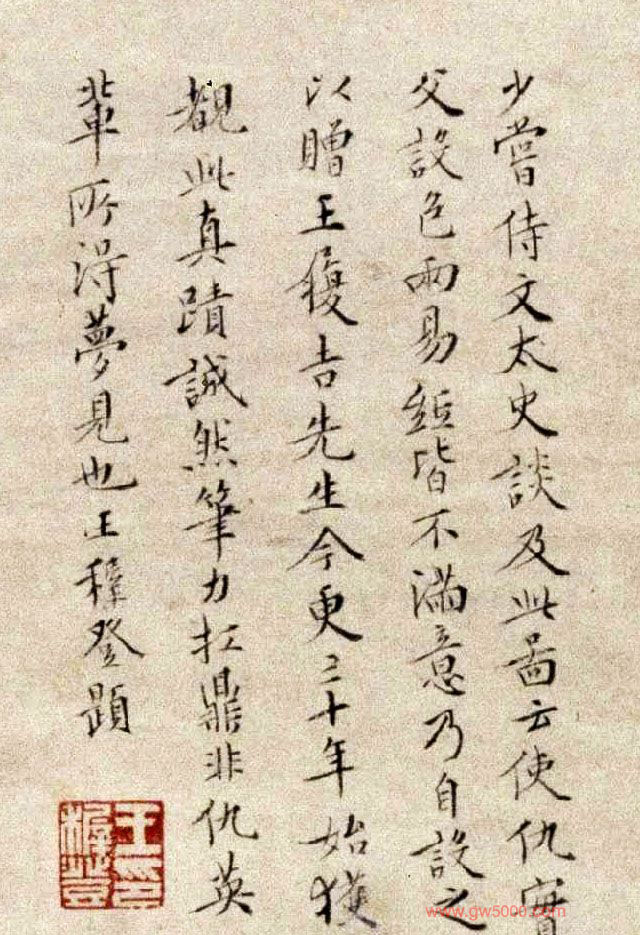 少嘗侍文太史談及此圖云使仇實
父設色兩易紙皆不滿意乃自設之
以贈王履吉先生今更二十年始獲
觀此真蹟誠然筆力扛鼎非仇英
輩所得夢見也王穉登題
王印
穉登
www.gw5000.com